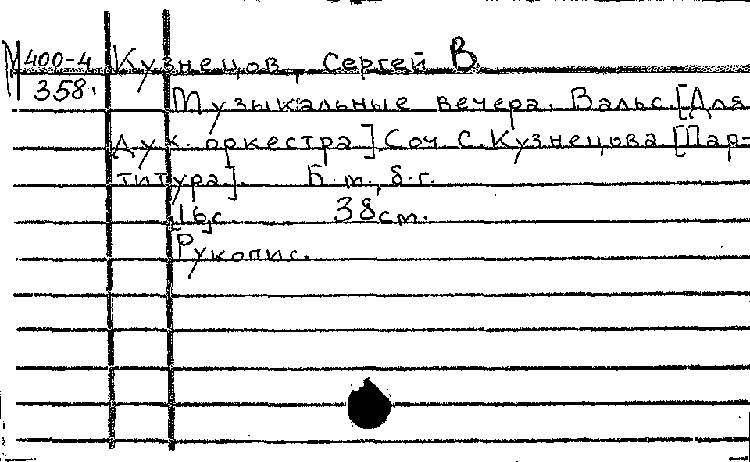 М 400-4 Кузнецов, Сергей В.
358.
Музыкальные вечера. Вальс. [Для
дух. оркестра] Соч. С. Кузнецова [Пар-
титура]. Б. м., б. г.
16 с. 38 см.
Рукопис.